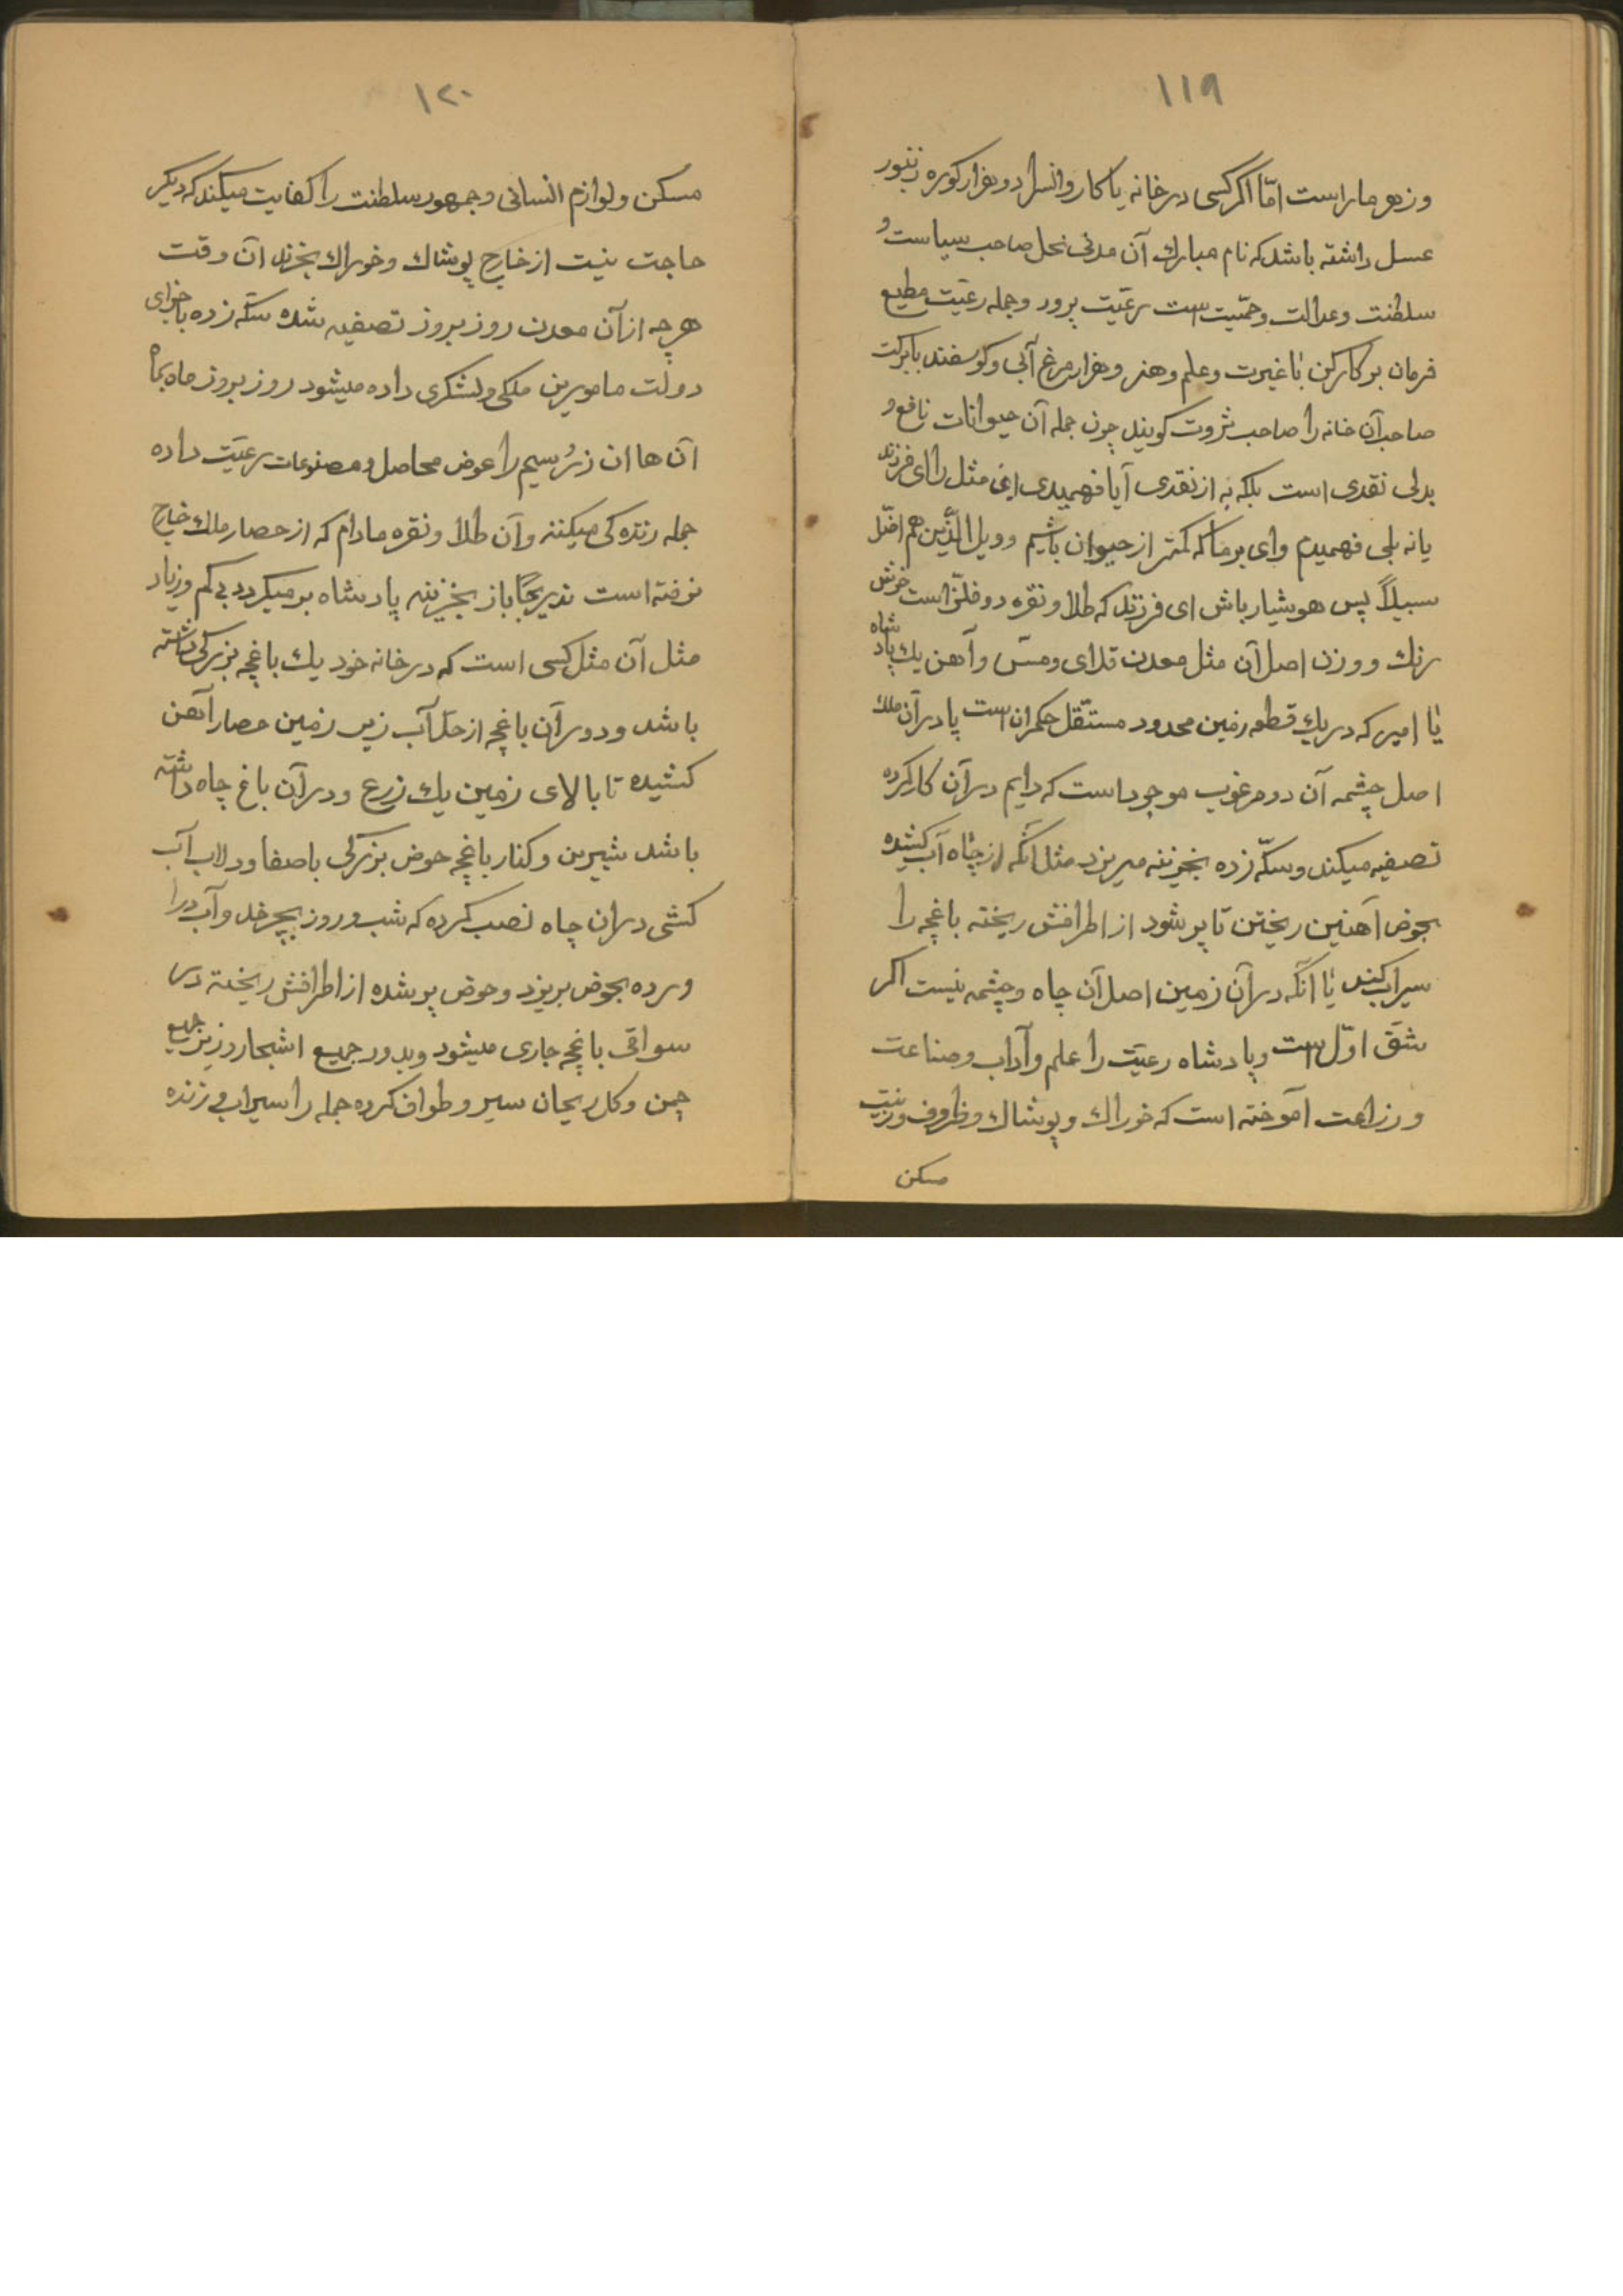 ١١٩
وزهر مار است امّا اگر کسی در خانه یا کاروانسرا دو هزار کوره زنبور
عسل داشته باشد که نام مبارك آن مدنی نحل صاحب سیاست و
سلطنت وعدالت وحمّیت است رعّیت پرور وجمله رعّیت مطیع
فرمان بر کارکن باغیرت وعلم وهنر وهزار مرغ آبی وکوسفند بابرکت
صاحب آن خانه را صاحب ثروت کویند چون جمله آن حیوانات نافع و
بدل نقدی است بلکه به از نقدی آیا فهمیدی این مثل را ای فرزند
یا نه بلی فهمیدم وای بر ما که کمتر از حیوان باشیم وویل الّذین هم اضّل
سبیلاً پس هوشیار باش ای فرزند که طلا ونقره دو فلّز است خوش
رنك ووزن اصل آن مثل معدن قلای ومس وآهن یك پادشاه
یا امیر که در یك قطعه زمین محدود مستقل حکمران است یا در آن ملك
اصل چشمه آن دو مرغوب موجود است که دایم در آن کار کرده
تصفیه میکند وسکّه زده بخزینه میریزد مثل آنکه از چاه آب کشیده
بحوض آهنین ریختن تا پر شود از اطرافش ریخته باغچه را
سیراب کند یا آنکه در آن زمین اصل آن چاه وچشمه نیست اکر
شقّ اوّل است وپادشاه رعیّت را علم وآداب وصناعت
وزراعت آموخته است که خوراك وپوشاك وظروف وزینت
مسکن
١٢٠
مسکن ولوازم انسانی وجمهور سلطنت را کفایت میکند که دیکر
حاجت نیست از خارج پوشاك وخوراك بخرند آن وقت
هرچه از آن معدن روز بروز تصفیه شده سکّه زده باجزای
دولت مامورین ملکی ولشکری داده میشود روز بروز ماه بماه
آن ها ان زر وسیم را عوض محاصل ومصنوعات رعیّت داده
جمله زنده کی میکنند وآن طلا ونقره مادام که از حصار ملك خارج
نرفته است تدریجاً باز بخزینه پادشاه برمیکردد بی کم وزیاد
مثل آن مثل کسی است که در خانه خود یك باغچه بزرکی داشته
باشد ودور آن باغچه از حدّ آب زیر زمین حصار آهن
کشیده تا بالای زمین یك زرع ودر آن باغ چاه داشته
باشد شیرین وکنار باغچه حوض بزرکی باصفا ودولاب آب
کشی در ان چاه نصب کرده که شب وروز بچرخد وآب در آ
ورده بحوض بریزد وحوض پر شده از اطرافش ریخته در
سواقی باغچه جاری میشود وبدور جمیع اشجار وزیر جمیع
چمن وکل ریحان سیر وطواف کرده جمله را سیراب وزنده